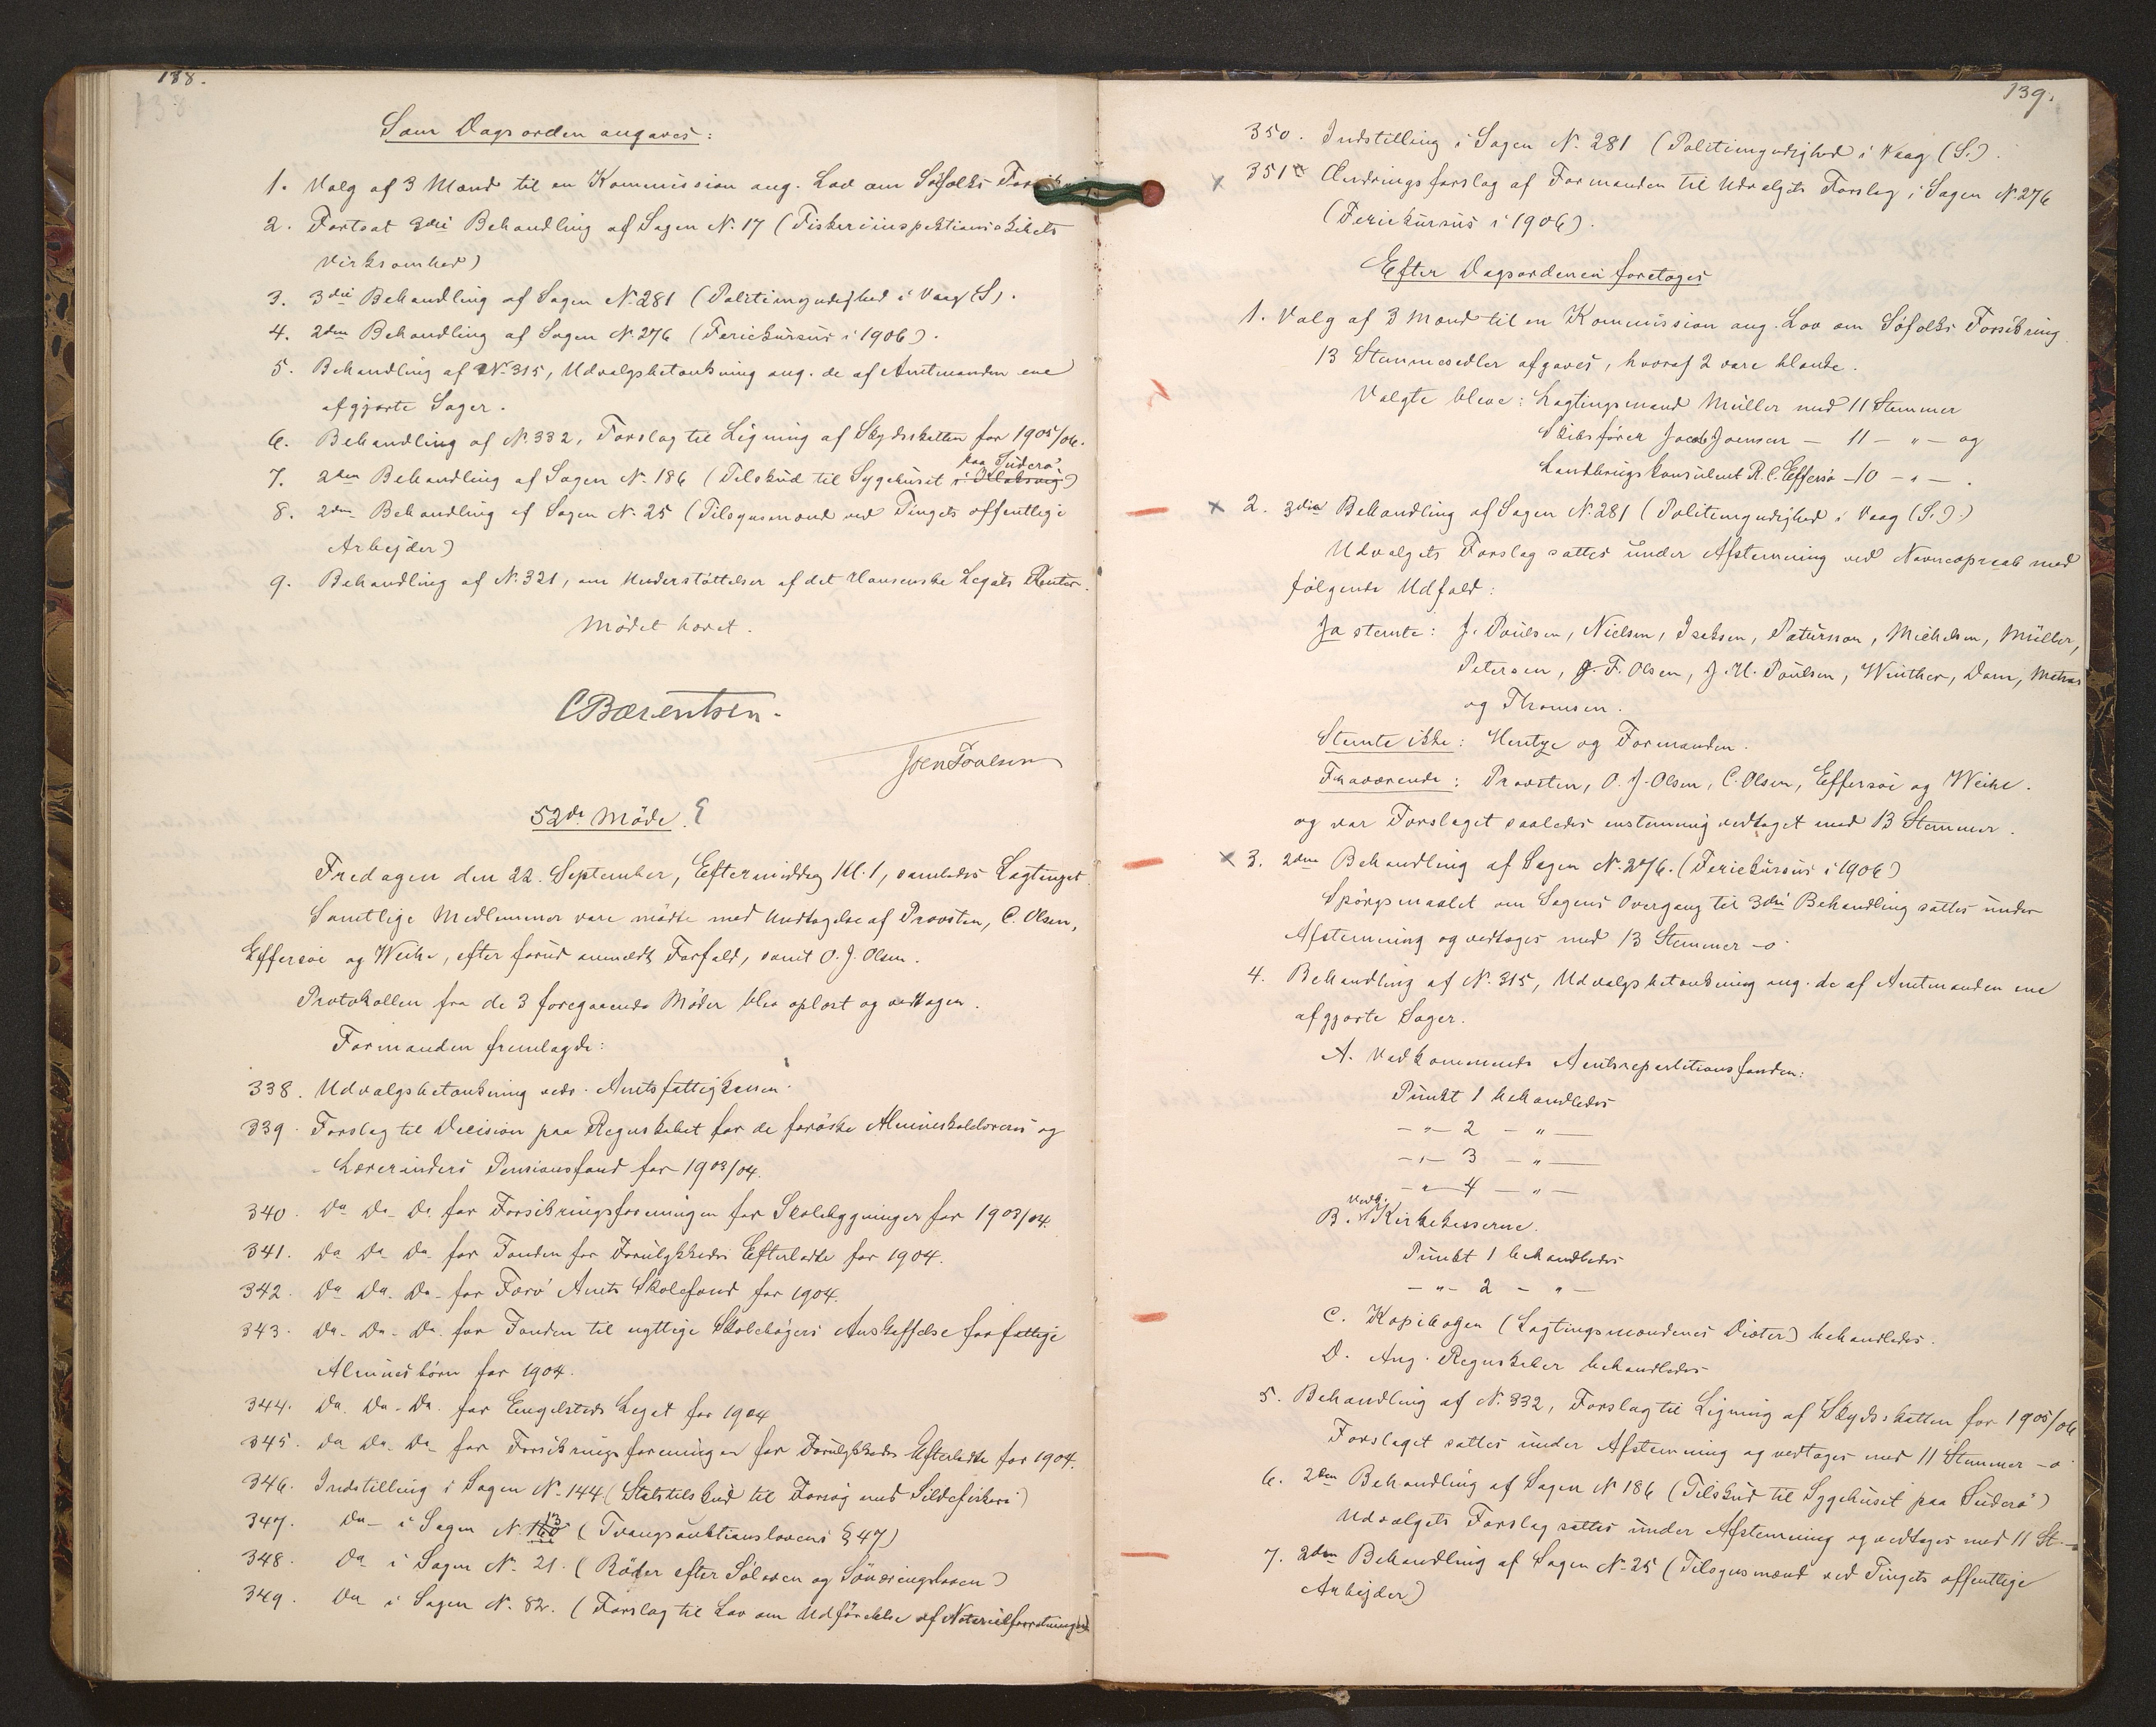 138.
138
Som Dagsorden angaves:
1. Valg af 3 Mænd til en Kommission ang. Lov om Søfolks
2. Fortsat 3die Behandling af Sagen N. 17 (Fiskeriinspektionsskibets
Virksomhed)
3. 3die Behandling af Sagen N. 281 (Politimyndighed i Vaag (S).
4. 2den Behandling af Sagen N. 276 (Feriekursus i 1906).
5. Behandling af N. 315, Udvalgsbetænkning ang. de af Amtmanden ene
afgjorte Sager.
6. Behandling af N. 332, Forslag til Ligning af Skydsskatten for 1905/06.
paa Suderø
7. 2den Behandling af Sagen N. 186 (Tilskud til Sygehuset i Klaksvig)
8. 2den Behandling af Sagen N. 25 (Tilsynsmænd ved Tingets offentlige
Arbejder)
9. Behandling af N. 321, om Understøttelser af det Hansenske Legats Renter.
Mødet hævet.
C Bærentsen.
Joen Poulsen
52de Møde.
Fredagen den 22. September, Eftermiddag Kl. 1, samledes Lagtinget
Samtlige Medlemmer vare mødte med Undtagelse af Provsten, C. Olsen,
Effersøe og Weihe, efter forud anmeldt Forfald, samt O. J. Olsen.
Protokollen fra de 3 foregaaende Møder blev oplæst og vedtagen.
Formanden fremlagde:
338. Udvalgsbetænkning vedr. Amtsfattigkassen.
339. Forslag til Decision paa Regnskabet for de færøske Almueskolelæreres og
Lærerinders Pensionsfond for 1903/04.
340. Do Do Do for Forsikringsforeningen for Skolebygninger for 1903/04.
341. Do Do Do for Fonden for Forulykkedes Efterladte for 1904.
342. Do Do Do for Færø Amts Skolefond for 1904.
343. Do Do Do for Fonden til nyttige Skolebøgers Anskaffelse for fattige
Almuesbørn for 1904.
344. Do Do Do for Engelsteds Legat for 1904
345. Do Do Do for Forsikringsforeningen for Forulykkedes Efterladte for 1904.
346. Indstilling i Sagen N. 144 (Statstilskud til Forsøg med Sildefiskeri)
13
347. Do i Sagen N. 160 (Tvangsauktionslovens § 47)
348. Do i Sagen N. 21. (Bøder efter Søloven og Sønæringsloven)
349. Do i Sagen N. 82. (Forslag til Lov om Udførelse af Notarialforretninger)
139.
350. Indstilling i Sagen N. 281 (Politimyndighed i Vaag (S.).
351 Ændringsforslag af Formanden til Udvalgets Forslag i Sagen N. 276
(Feriekursus i 1906).
Efter Dagsordenen foretoges
1. Valg af 3 Mænd til en Kommission ang. Lov om Søfolks Forsikring.
13 Stemmesedler afgaves, hvoraf 2 vare blanke.
Valgte bleve: Lagtingsmand Müller med 11 Stemmer
Skibsfører Jacob Joensen — 11 — " — og
Landbrugskonsulent R. C. Effersø — 10 — " — .
x 2. 3die Behandling af Sagen N. 281 (Politimyndighed i Vaag (S.))
Udvalgets Forslag sattes under Afstemning ved Navneopraab med
følgende Udfald:
Ja stemte: J. Poulsen, Nielsen, Isaksen, Patursson, Michelsen, Müller,
Petersen, J. F. Olsen, J. H. Poulsen, Winther, Dam, Matras
og Thomsen.
Stemte ikke: Hentze og Formanden.
Fraværende: Provsten, O. J. Olsen, C. Olsen, Effersøe og Weihe.
og var Forslaget saaledes enstemmig vedtaget med 13 Stemmer.
x 3. 2den Behandling af Sagen N. 276. (Feriekursus i 1906)
Spørgsmaalet om Sagens Overgang til 3die Behandling sattes under
Afstemning og vedtoges med 13 Stemmer — o
4. Behandling af N. 315, Udvalgsbetænkning ang. de af Amtmanden ene
afgjorte Sager.
A. Vedkommende Amtsrepartitionsfonden:
Punkt 1 behandledes
— " — 2 — " —
— " — 3 — " —
— " — 4 — " —
vedk.
B. Kirkekasserne.
Punkt 1 behandledes
— " — 2 — " —
C. Kopibogen (Lagtingsmændenes Diæter) behandledes.
D. Ang. Regnskaber behandledes
5. Behandling af N. 332, Forslag til Ligning af Skydsskatten for 1905/06
Forslaget sattes under Afstemning og vedtoges med 11 Stemmer — o
6. 2den Behandling af Sagen N 186 (Tilskud til Sygehuset paa Suderø)
Udvalgets Forslag sattes under Afstemning og vedtoges med 11 St. —
7. 2den Behandling af Sagen N. 25 (Tilsynsmænd ved Tingets offentlige
Arbejder)